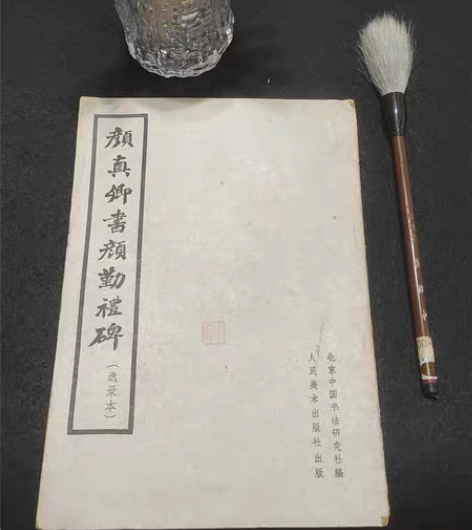 顏真卿書顏勤禮碑
（选录本）
北京中国书法研究社编
人民美术出版社出版